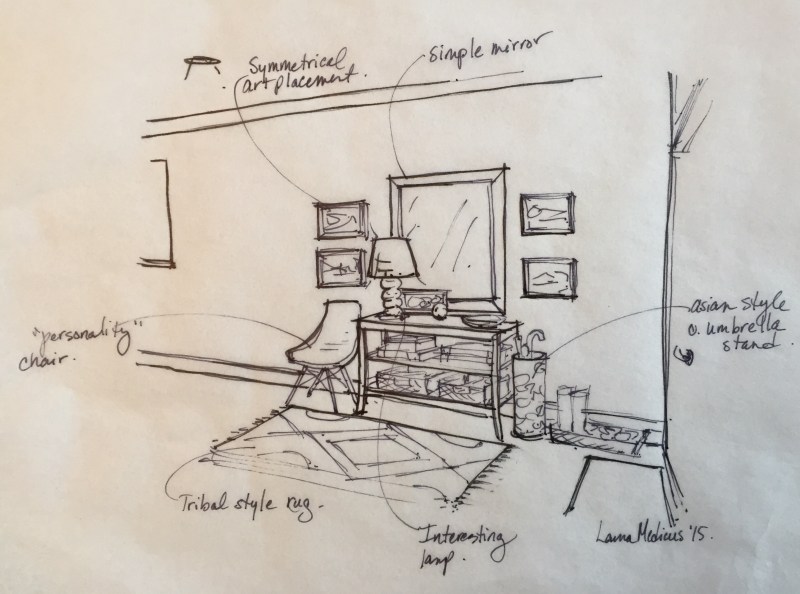 Symmetrical
art placement.
simple mirror
"personality"
chair.
asian style
o. umbrella
stand.
Tribal style rug.
Interesting
lamp.
Medicus '15.